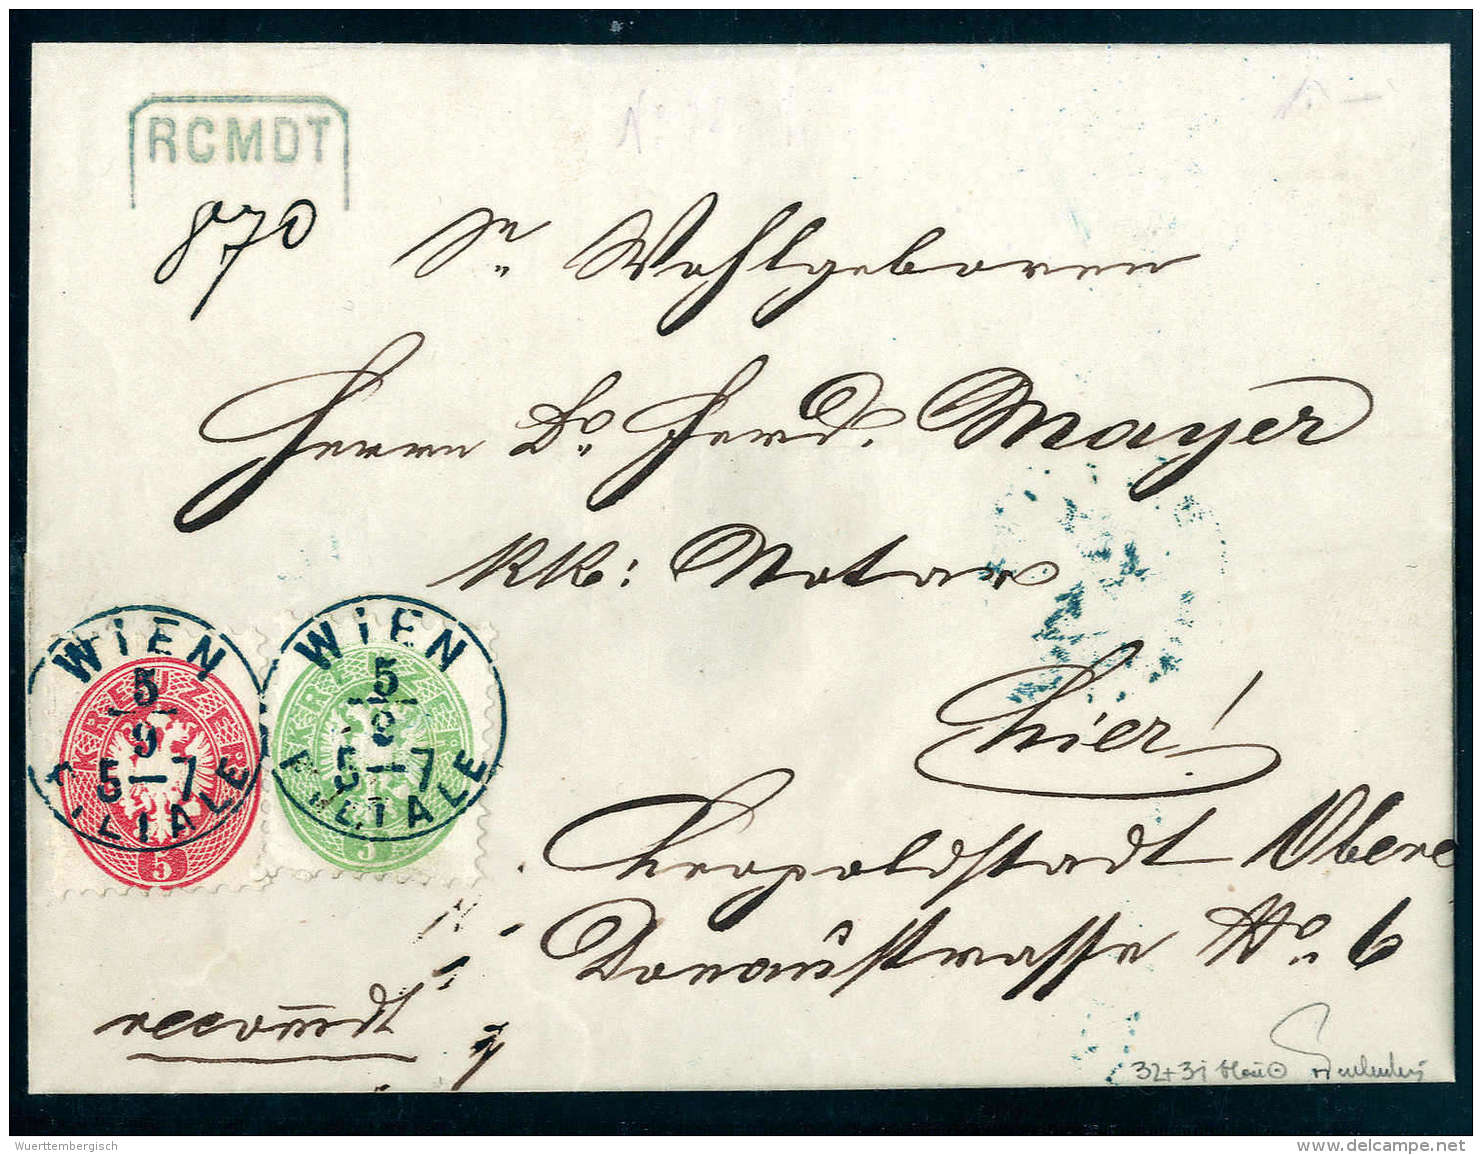 RCMDT
870
Sr. Wohlgeboren
Herrn Dr. Ferd. Mayer
KK: Notar
hier!
Leopoldstadt Obere
Donaustrasse No. 6
WIEN
5
9
5-7
FILIALE
KREUZER
5
WIEN
5
9
5-7
FILIALE
KREUZER
3
recomdt
32+31 blau
Wuerttembergisch
www.delcampe.net